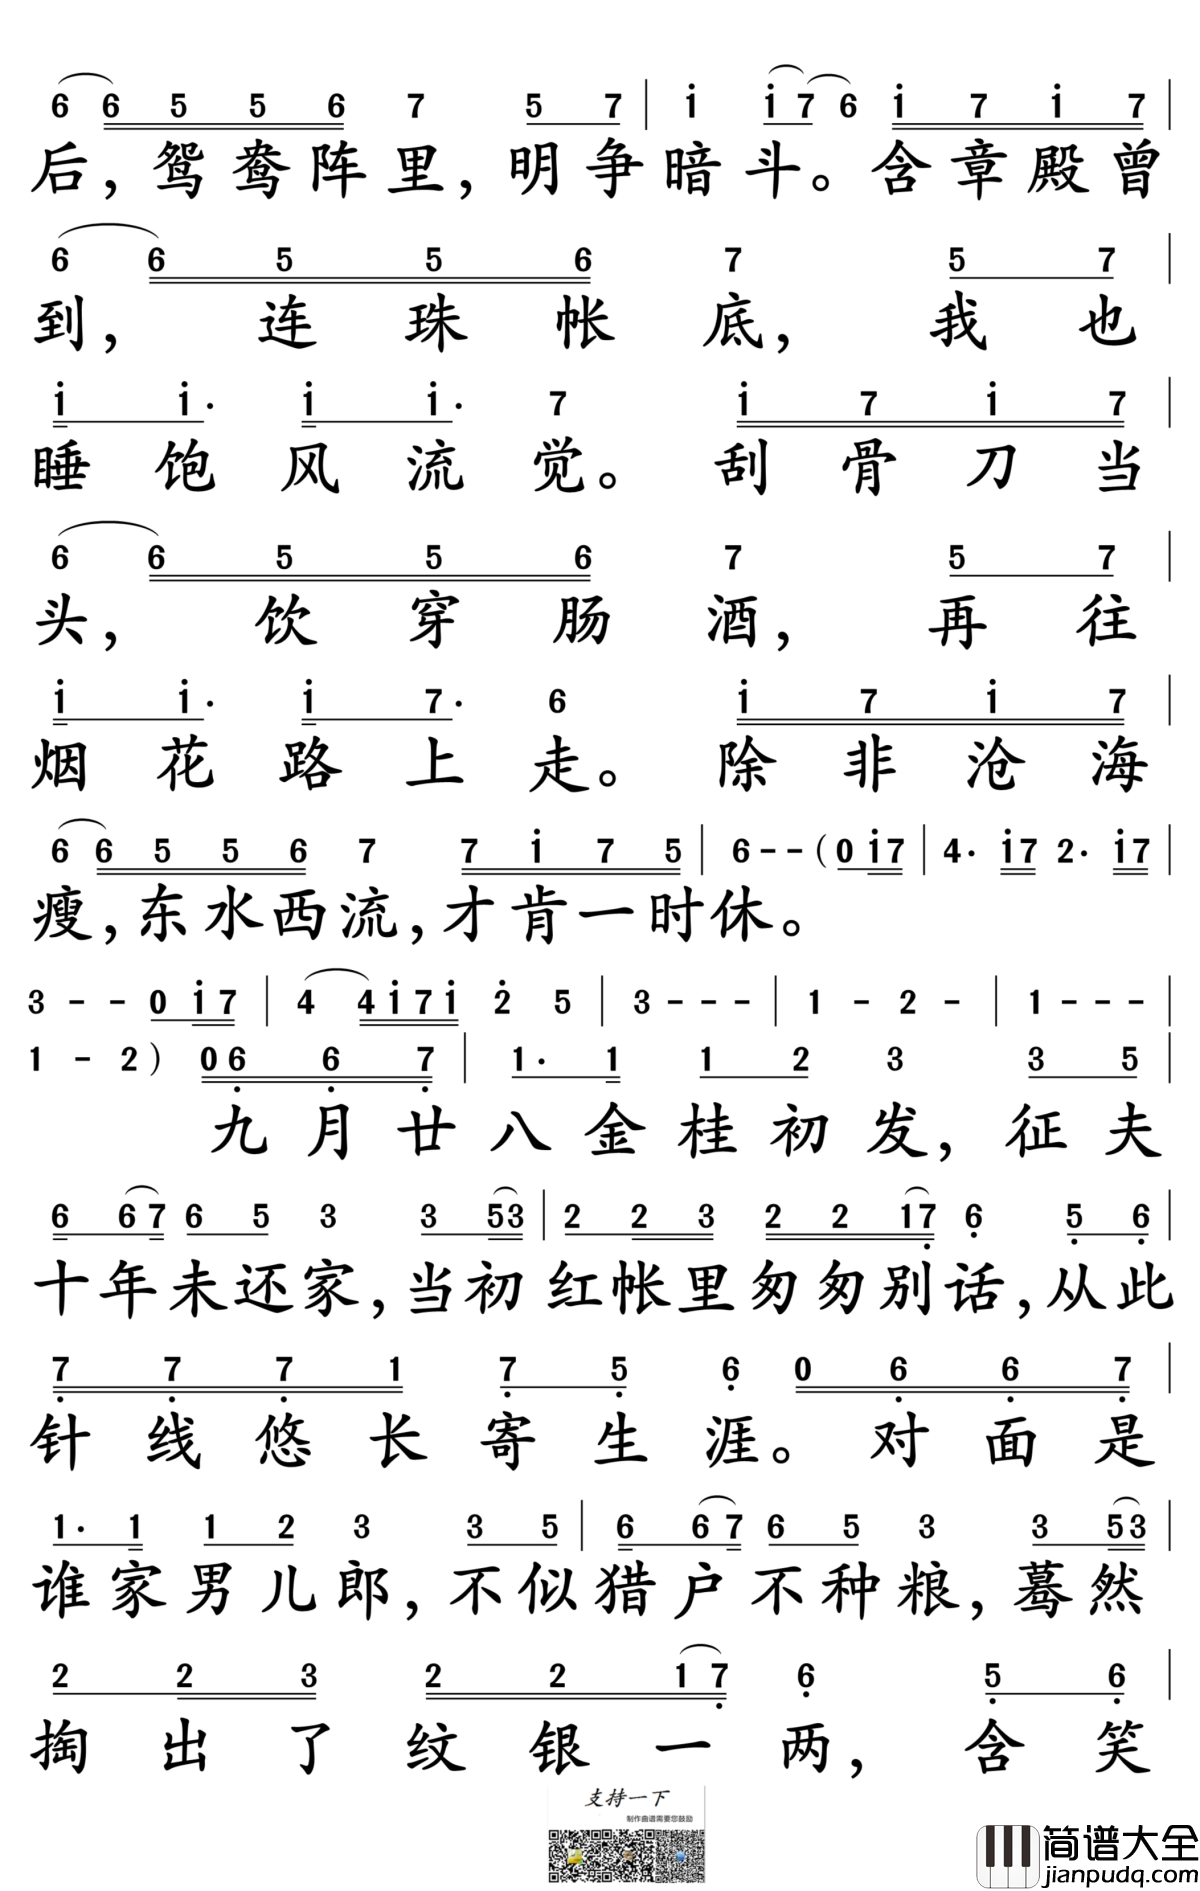 6 6 5 5 6 7 5 7 | i i 7 6 i 7 i 7 |
后，鸳鸯阵里，明争暗斗。含章殿曾
6 6 5 5 6 7 5 7 |
到，连珠帐底，我也
i i· i i· 7 i 7 i 7 |
睡饱风流觉。刮骨刀当
6 6 5 5 6 7 5 7 |
头，饮穿肠酒，再往
i i· i 7· 6 i 7 i 7 |
烟花路上走。除非沧海
6 6 5 5 6 7 7 i 7 5 | 6 - - (0 i 7 | 4· i 7 2· i 7 |
瘦，东水西流，才肯一时休。
3 - - 0 i 7 | 4 4 i 7 i 2 5 | 3 - - - | 1 - 2 - | 1 - - - |
1 - 2 ) 0 6 6 7 | 1· 1 1 2 3 3 5 |
九月廿八金桂初发，征夫
6 6 7 6 5 3 3 5 3 | 2 2 3 2 2 1 7 6 5 6 |
十年未还家，当初红帐里匆匆别话，从此
7 7 7 1 7 5 6 0 6 6 7 |
针线悠长寄生涯。对面是
1· 1 1 2 3 3 5 | 6 6 7 6 5 3 3 5 3 |
谁家男儿郎，不似猎户不种粮，蓦然
2 2 3 2 2 1 7 6 5 6 |
掏出了纹银一两，含笑
支持一下
制作曲谱需要您鼓励
简谱大全
jianpudq.com